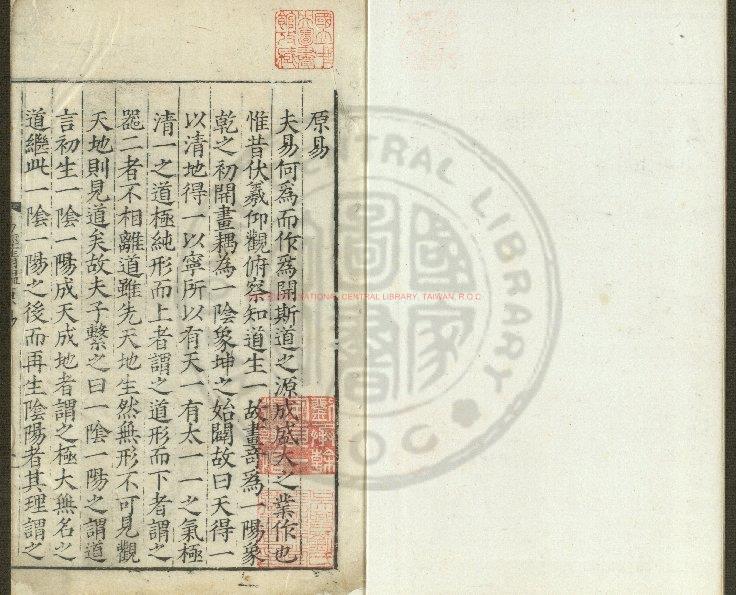 原易
夫易何爲而作爲開斯道之源成盛大之業作也
惟昔伏羲仰觀俯察知道生一故畫竒爲一陽象
乾之初開畫耦為一陰象坤之始闢故曰天得一
以清地得一以寧所以有天一有太一一之氣極
清一之道極純形而上者謂之道形而下者謂之
噐二者不相離道雖先天地生然無形不可見觀
天地則見道矣故夫子繫之曰一陰一陽之謂道
言初生一陰一陽成天成地者謂之極大無名之
道繼此一陰一陽之後而再生陰陽者其理謂之
國立中央圖書館收藏
NATIONAL CENTRAL LIBRARY, TAIWAN, R.O.C
CENTRAL LIBRARY
國家圖書